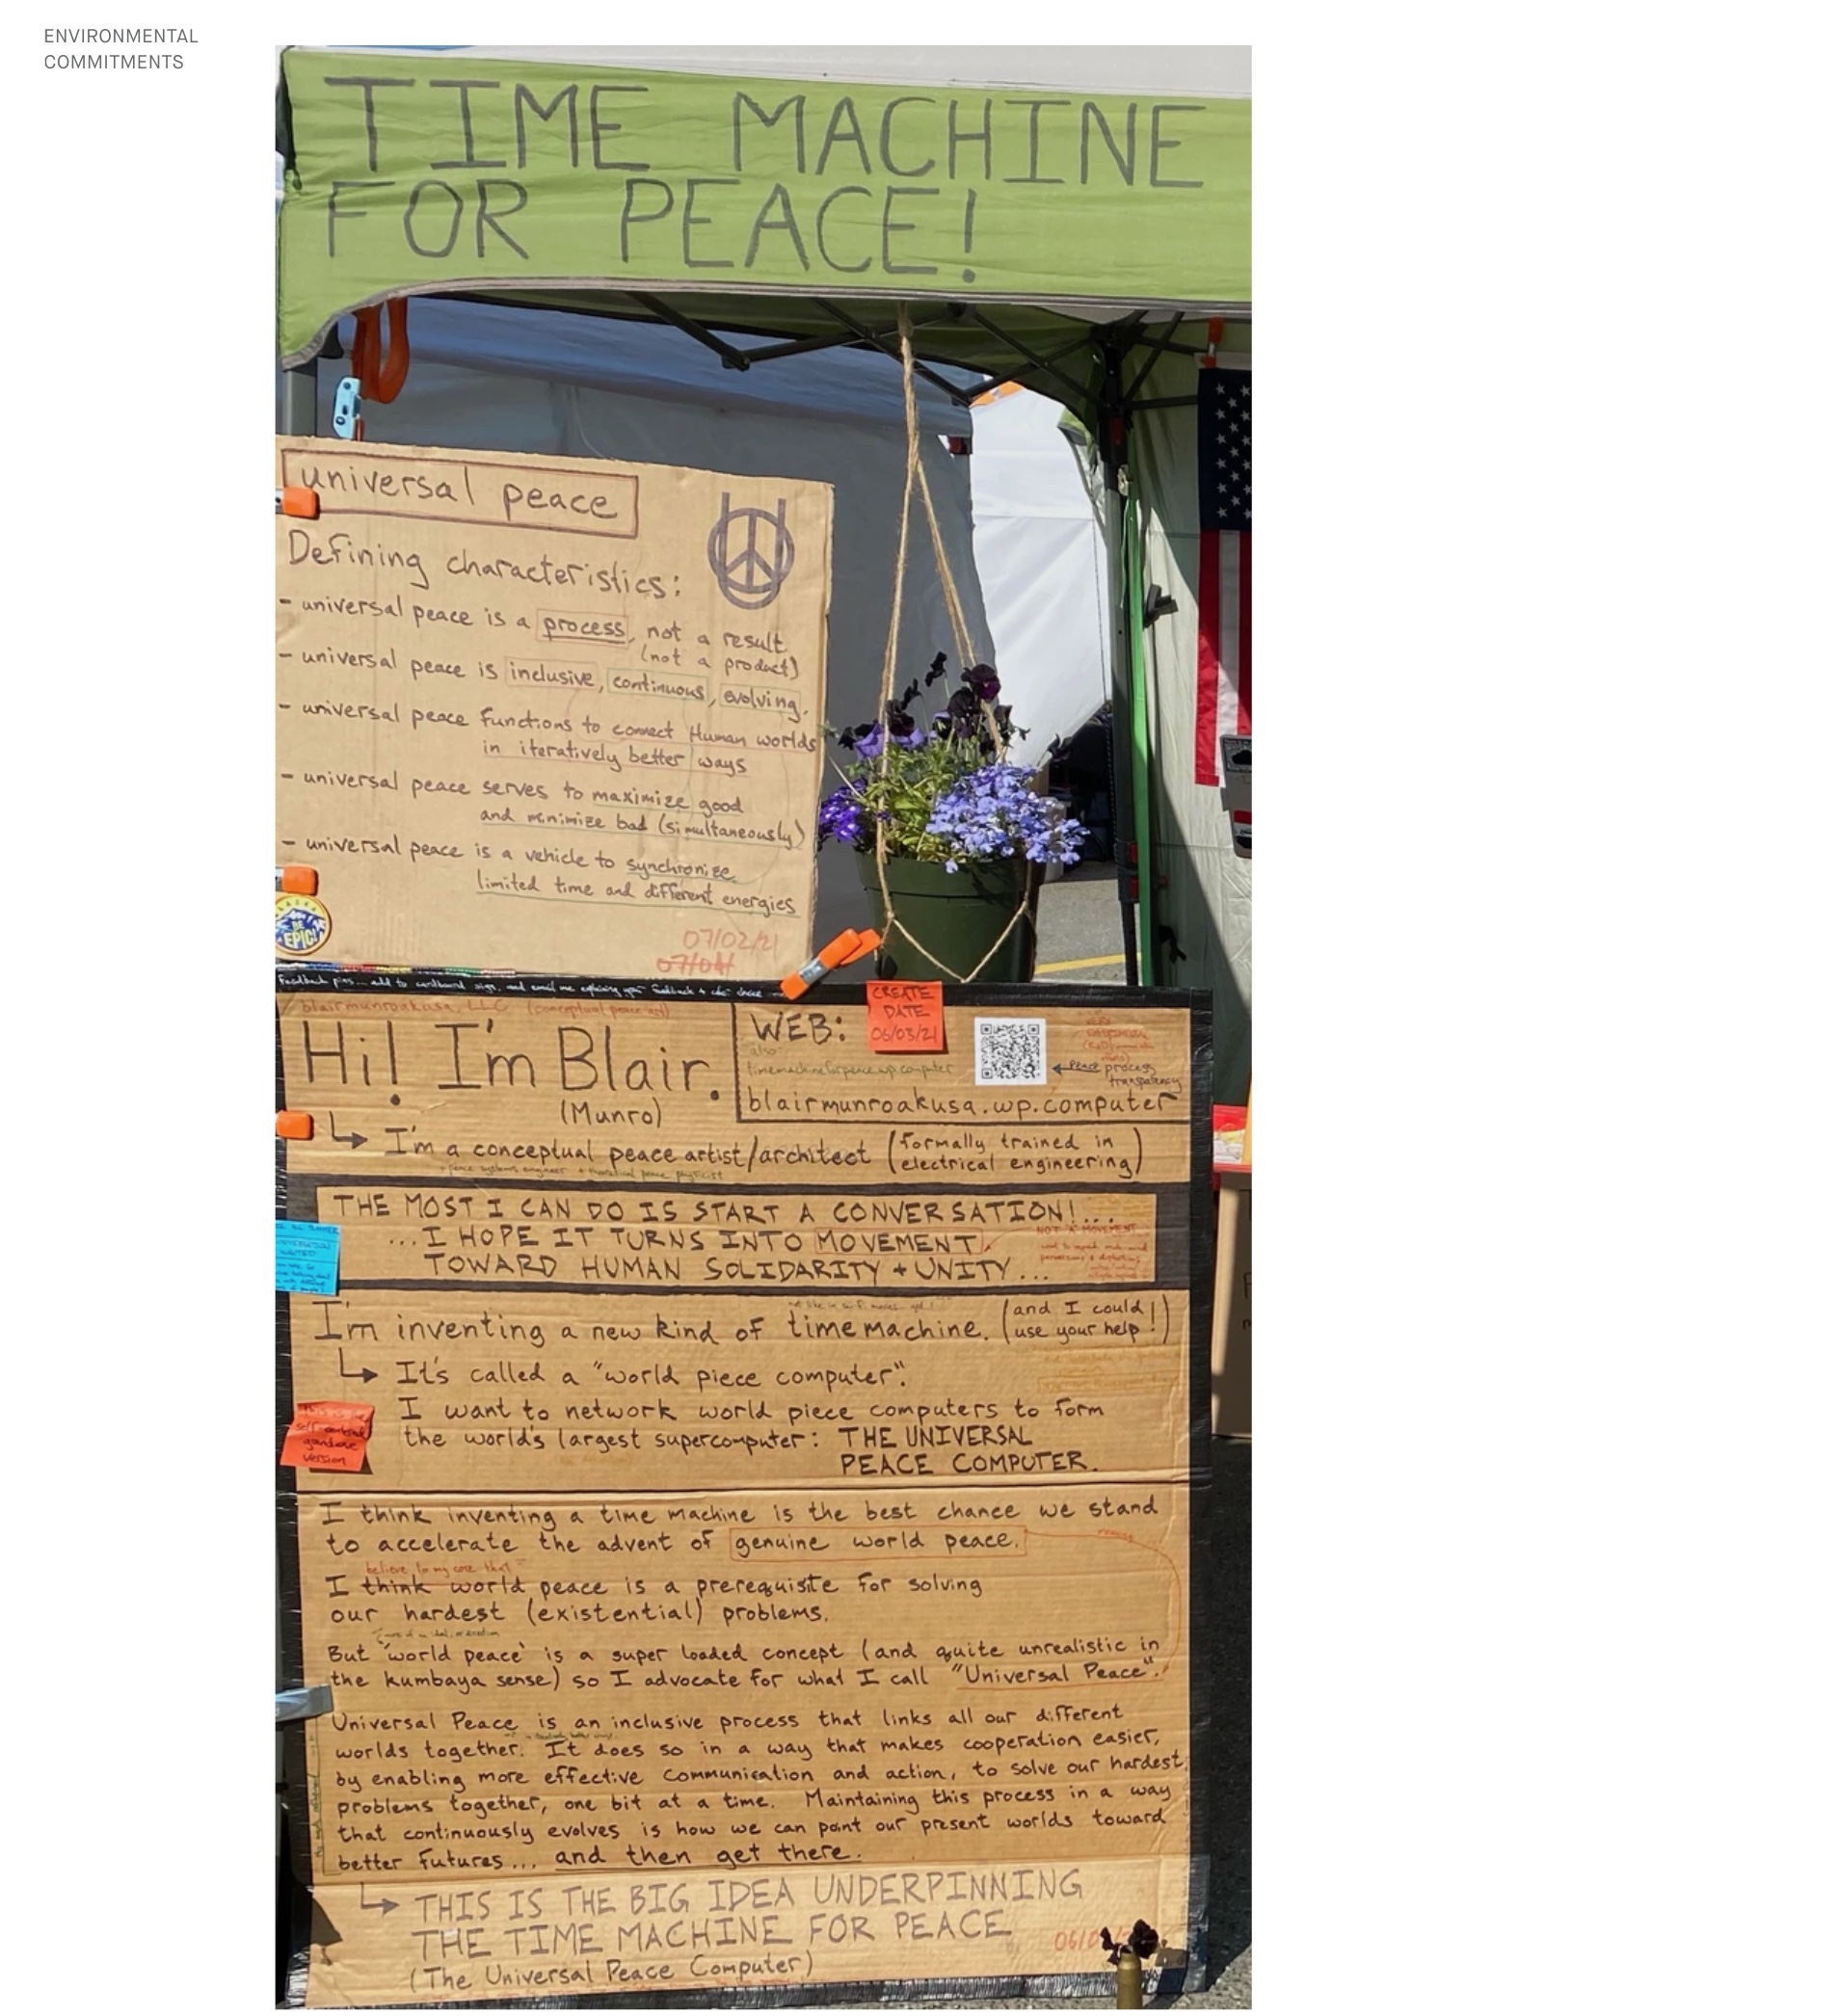 ENVIRONMENTAL
COMMITMENTS
TIME MACHINE
FOR PEACE!
universal peace
Defining characteristics:
- universal peace is a process, not a result
(not a product)
- universal peace is inclusive, continuous, evolving.
- universal peace functions to connect Human worlds
in iteratively better ways
- universal peace serves to maximize good
and minimize bad (simultaneously)
- universal peace is a vehicle to synchronize
limited time and different energies
07/02/21
07/04
EPIC!
Feedback pins... add to cardboard sign, and email me explaining your feedback +
blairmunroakusa, LLC (conceptual peace art)
Hi! I'm Blair.
(Munro)
WEB:
CREATE
DATE
06/03/21
also
timemachineforpeace.wp.computer
peace process
transparency
blairmunroakusa.wp.computer
↳ I'm a conceptual peace artist/architect (formally trained in
electrical engineering)
+ peace systems engineer + theoretical peace physicist
THE MOST I CAN DO IS START A CONVERSATION!...
...I HOPE IT TURNS INTO MOVEMENT
NOT "A" MOVEMENT
TOWARD HUMAN SOLIDARITY + UNITY...
I'm inventing a new kind of time machine. (and I could
use your help!)
↳ It's called a "world piece computer".
I want to network world piece computers to form
the world's largest supercomputer: THE UNIVERSAL
PEACE COMPUTER.
version
I think inventing a time machine is the best chance we stand
to accelerate the advent of genuine world peace.
believe to my core that
I think world peace is a prerequisite for solving
our hardest (existential) problems.
But 'world peace' is a super loaded concept (and quite unrealistic in
the kumbaya sense) so I advocate for what I call "Universal Peace".
Universal Peace is an inclusive process that links all our different
worlds together. It does so in a way that makes cooperation easier,
by enabling more effective communication and action, to solve our hardest
problems together, one bit at a time. Maintaining this process in a way
that continuously evolves is how we can point our present worlds toward
better futures... and then get there.
↳ THIS IS THE BIG IDEA UNDERPINNING
THE TIME MACHINE FOR PEACE
(The Universal Peace Computer)